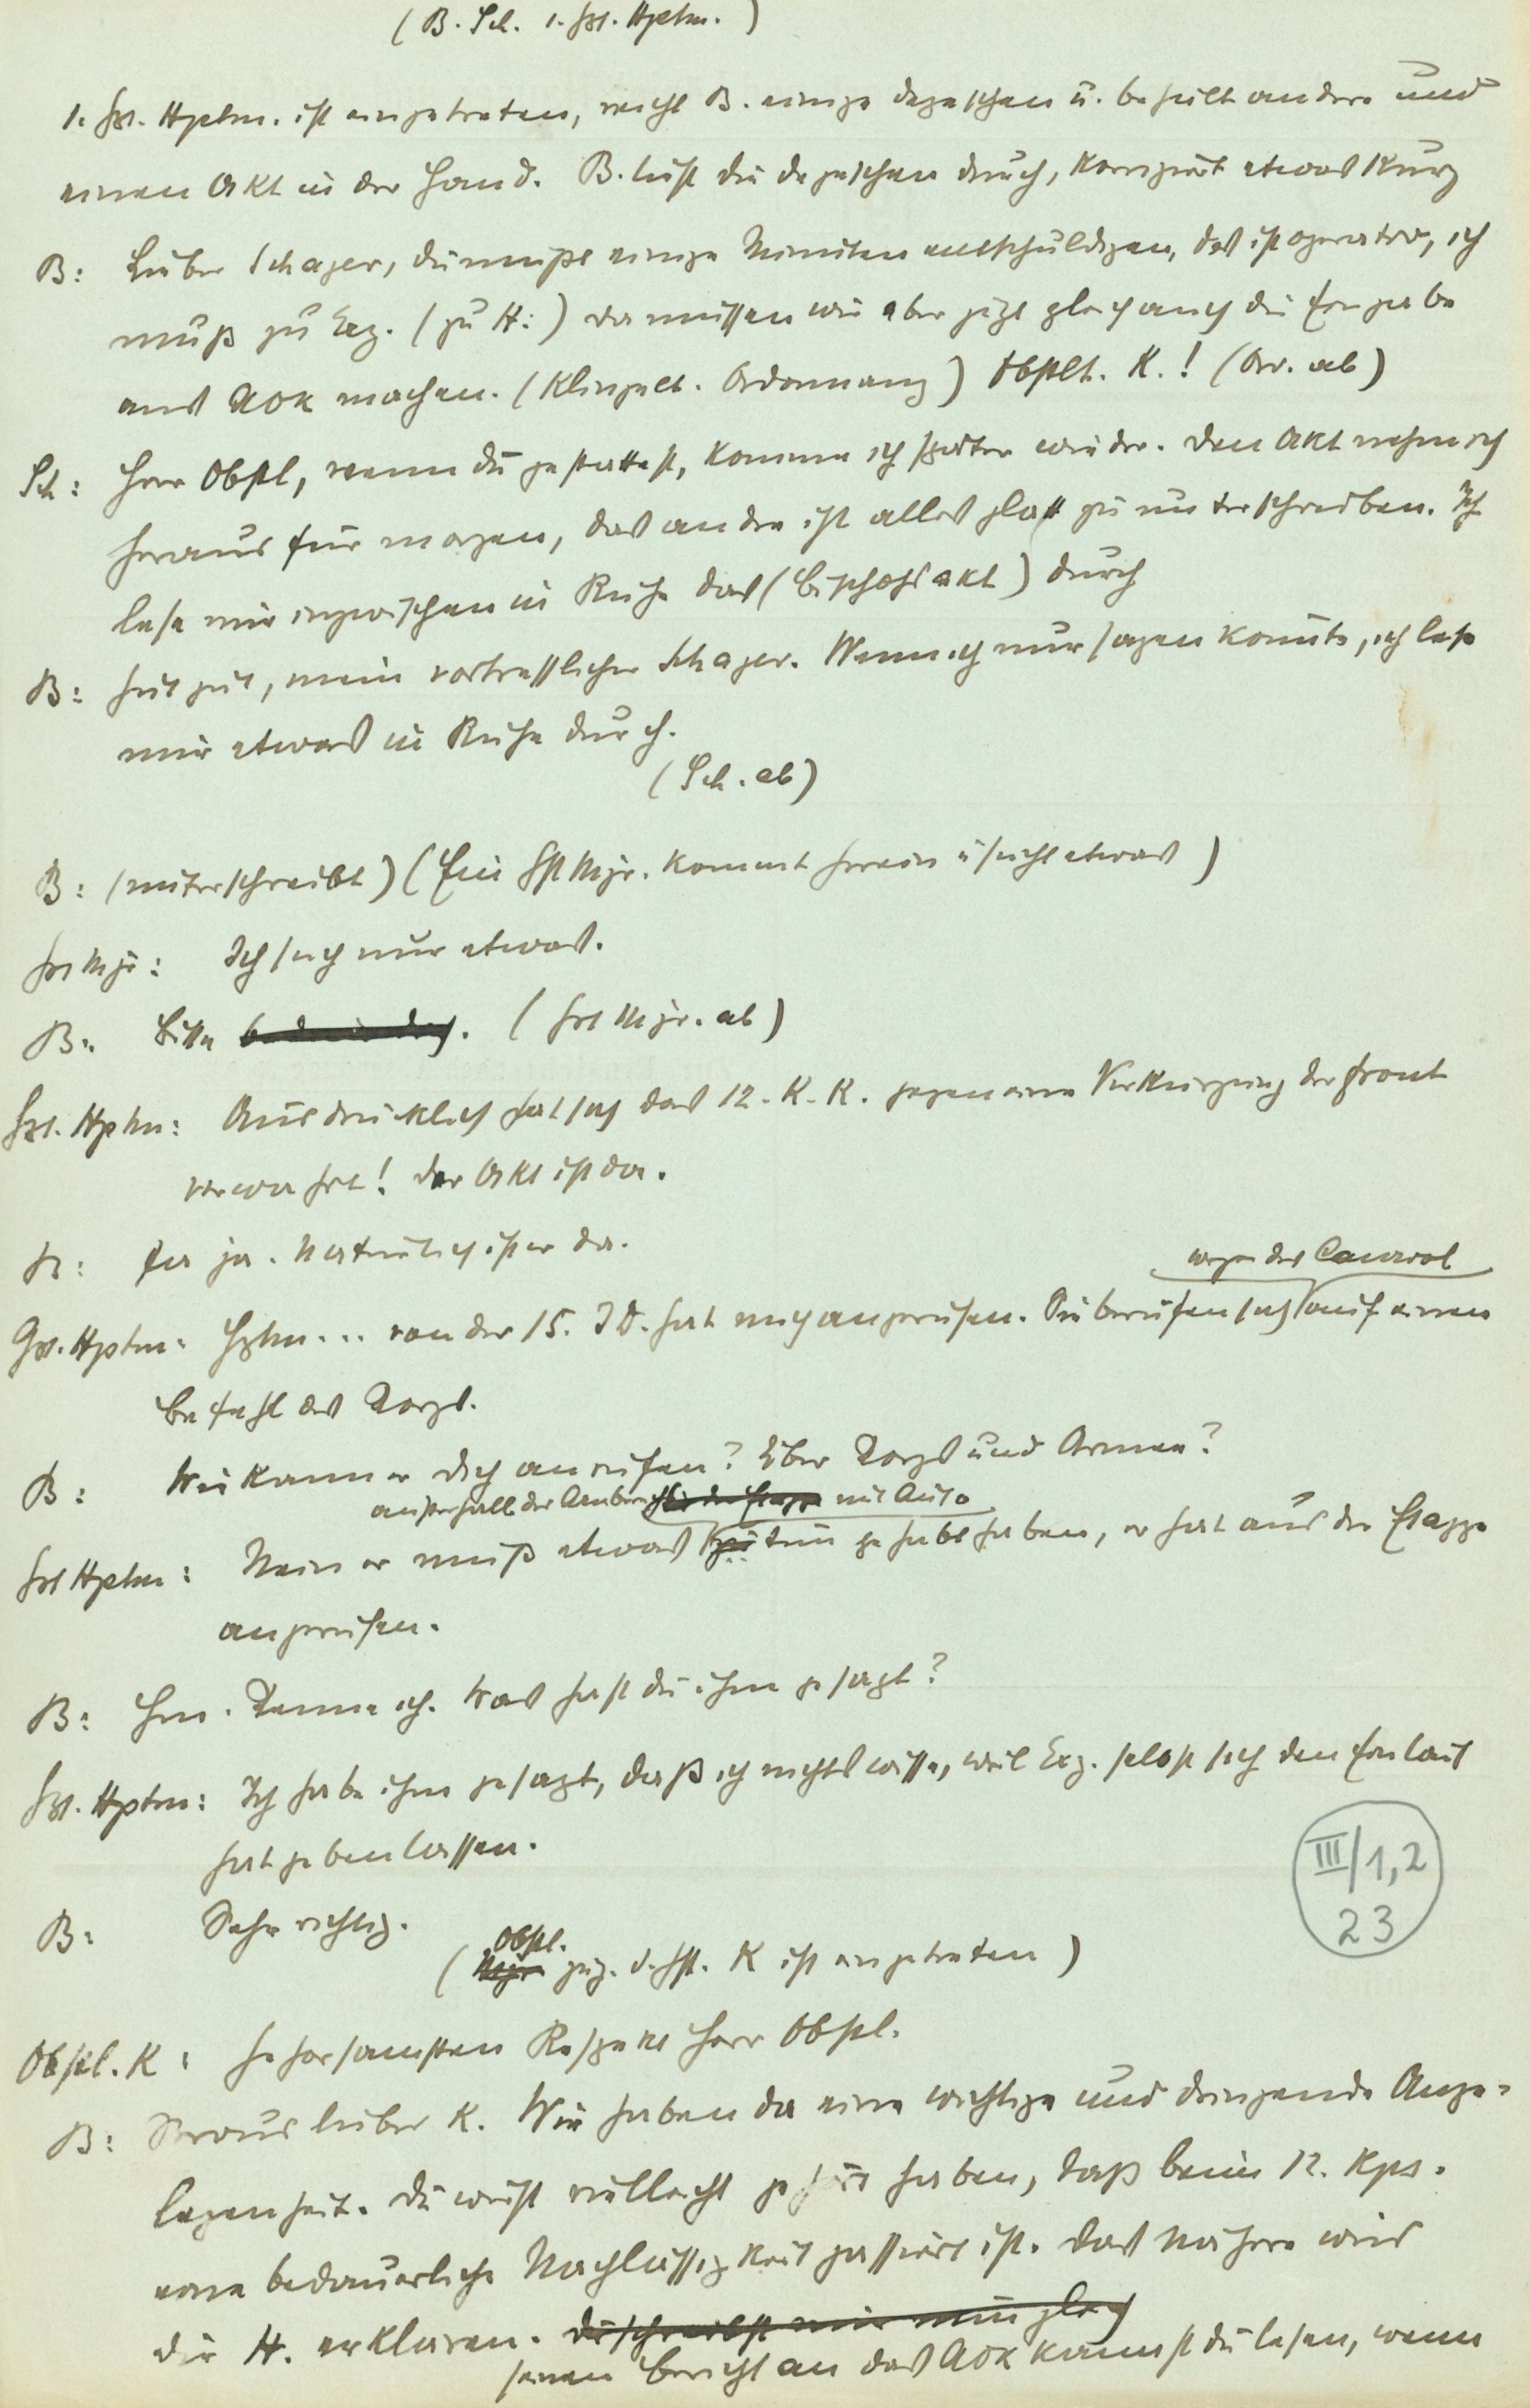 (B. Sch. 1. Gst. Hptm.)
1. Gst. Hptm. ist eingetreten, reicht B. einige Depeschen u. behält andere und
einen Akt in der Hand. B. liest die Depeschen durch, korrigiert etwas kurz
B: Lieber Schager, du mußt einige Minuten entschuldigen, das ist operativ, ich
muß zu Exz. (zu H:) da müssen wir aber jetzt gleich auch die Eingabe
ans AOK machen. (Klingelt. Ordonnanz) Obstlt. K.! (Or. ab)
Sch: Herr Obstl, wenn du gestattest, komme ich später wieder. Den Akt nehm ich
heraus für morgen, das andre ist alles glatt zu unterschreiben. Ich
lese mir inzwischen in Ruhe das (Bischofsakt) durch
B: Gut gut, mein vortrefflicher Schager. Wenn ich nur sagen könnte, ich lese
mir etwas in Ruhe durch.
(Sch. ab)
B: (unterschreibt) (Ein Gst Mjr. kommt herein u sucht etwas)
Gst Mjr: Ich such nur etwas.
B: Bitte. (Gst Mjr. ab)
Gst. Hptm: Ausdrücklich hat sich das 12. K. K. gegen eine Verkürzung der Front
verwahrt! Der Akt ist da.
B: Ja ja. Natürlich ist er da.
wegen des Canarol
Gst. Hptm: Hptm... von der 15. ID. hat mich angerufen. Sie berufen sich auf einen
Befehl des Korps.
B: Wie kann er dich anrufen? Über Korps und Armee?
außerhalb der Armbereichs mit Auto
Gst Hptm: Nein er muß etwas zu tun gehabt haben, er hat aus der Etappe
angerufen.
B: Hm. Kenne ich. Was hast du ihm gesagt?
Gst. Hptm: Ich habe ihm gesagt, daß ich nichts wisse, weil Exz. selbst sich den Einlauf
hat geben lassen.
B: Sehr richtig.
III/1,2
23
Obstl.
(zug. d. Gst. K ist eingetreten)
Obstl. K: Gehorsamsten Respekt Herr Obstl.
B: Servus lieber K. Wir haben da eine wichtige und dringende Ange=
legenheit. Du wirst vielleicht gehört haben, daß beim 12. Kps.
eine bedauerliche Nachlässigkeit passiert ist. Das nähere wird
dir H. erklären. Du schreibst mir nun gleich
seinen Bericht an das AOK kannst du lesen, wenn